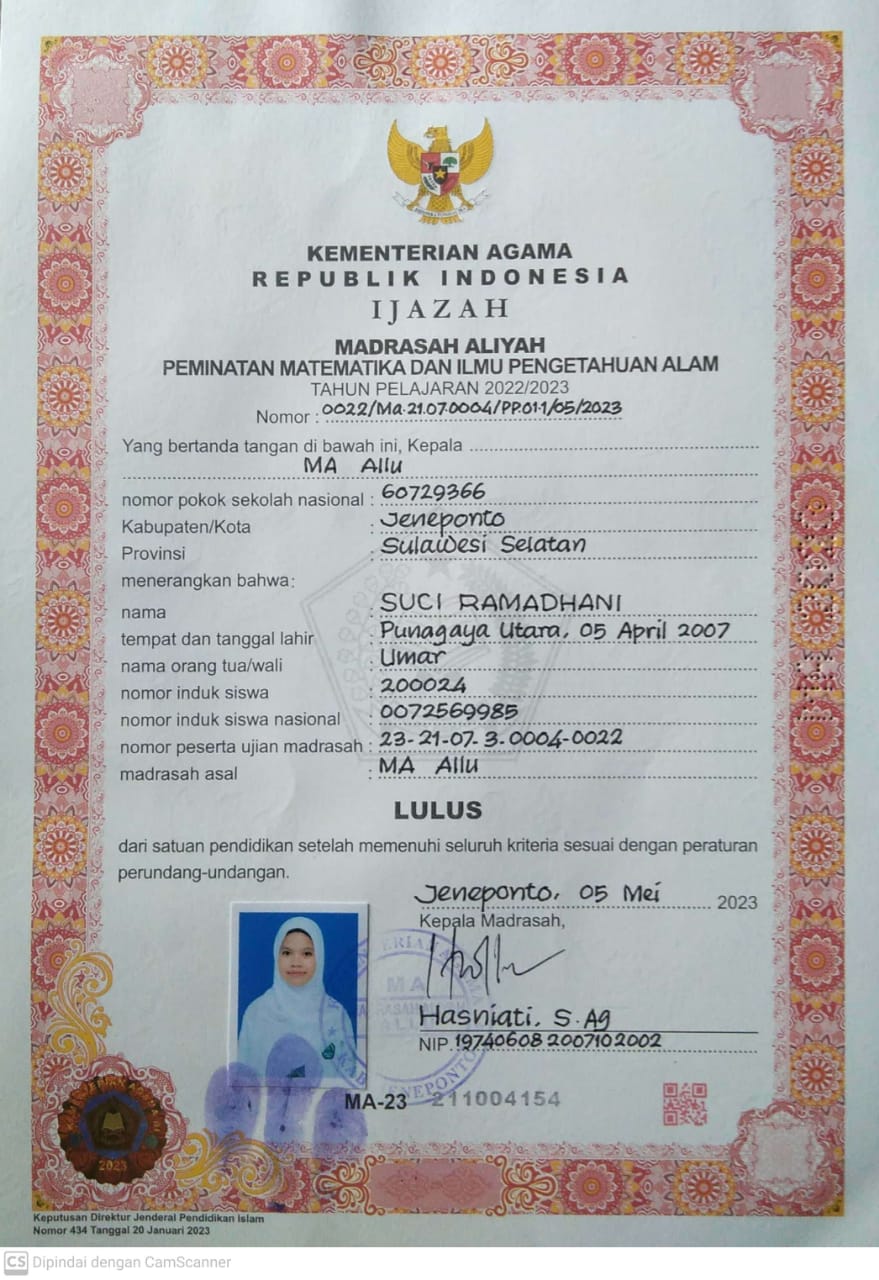 KEMENTERIAN AGAMA
REPUBLIK INDONESIA
IJAZAH
MADRASAH ALIYAH
PEMINATAN MATEMATIKA DAN ILMU PENGETAHUAN ALAM
TAHUN PELAJARAN 2022/2023
Nomor : 0022/Ma.21.07.0004/PP.01.1/05/2023
Yang bertanda tangan di bawah ini, Kepala
MA Allu
nomor pokok sekolah nasional : 60729366
Kabupaten/Kota : Jeneponto
Provinsi : Sulawesi Selatan
menerangkan bahwa:
nama : SUCI RAMADHANI
tempat dan tanggal lahir : Punagaya Utara, 05 April 2007
nama orang tua/wali : Umar
nomor induk siswa : 200024
nomor induk siswa nasional : 0072569985
nomor peserta ujian madrasah : 23-21-07-3-0004-0022
madrasah asal : MA Allu
LULUS
dari satuan pendidikan setelah memenuhi seluruh kriteria sesuai dengan peraturan
perundang-undangan.
Jeneponto, 05 Mei 2023
Kepala Madrasah,
MA
Hasniati, S.Ag
NIP. 197406082007102002
JENEPONTO
MA-23 211004154
2023
Keputusan Direktur Jenderal Pendidikan Islam
Nomor 434 Tanggal 20 Januari 2023
CS Dipindai dengan CamScanner